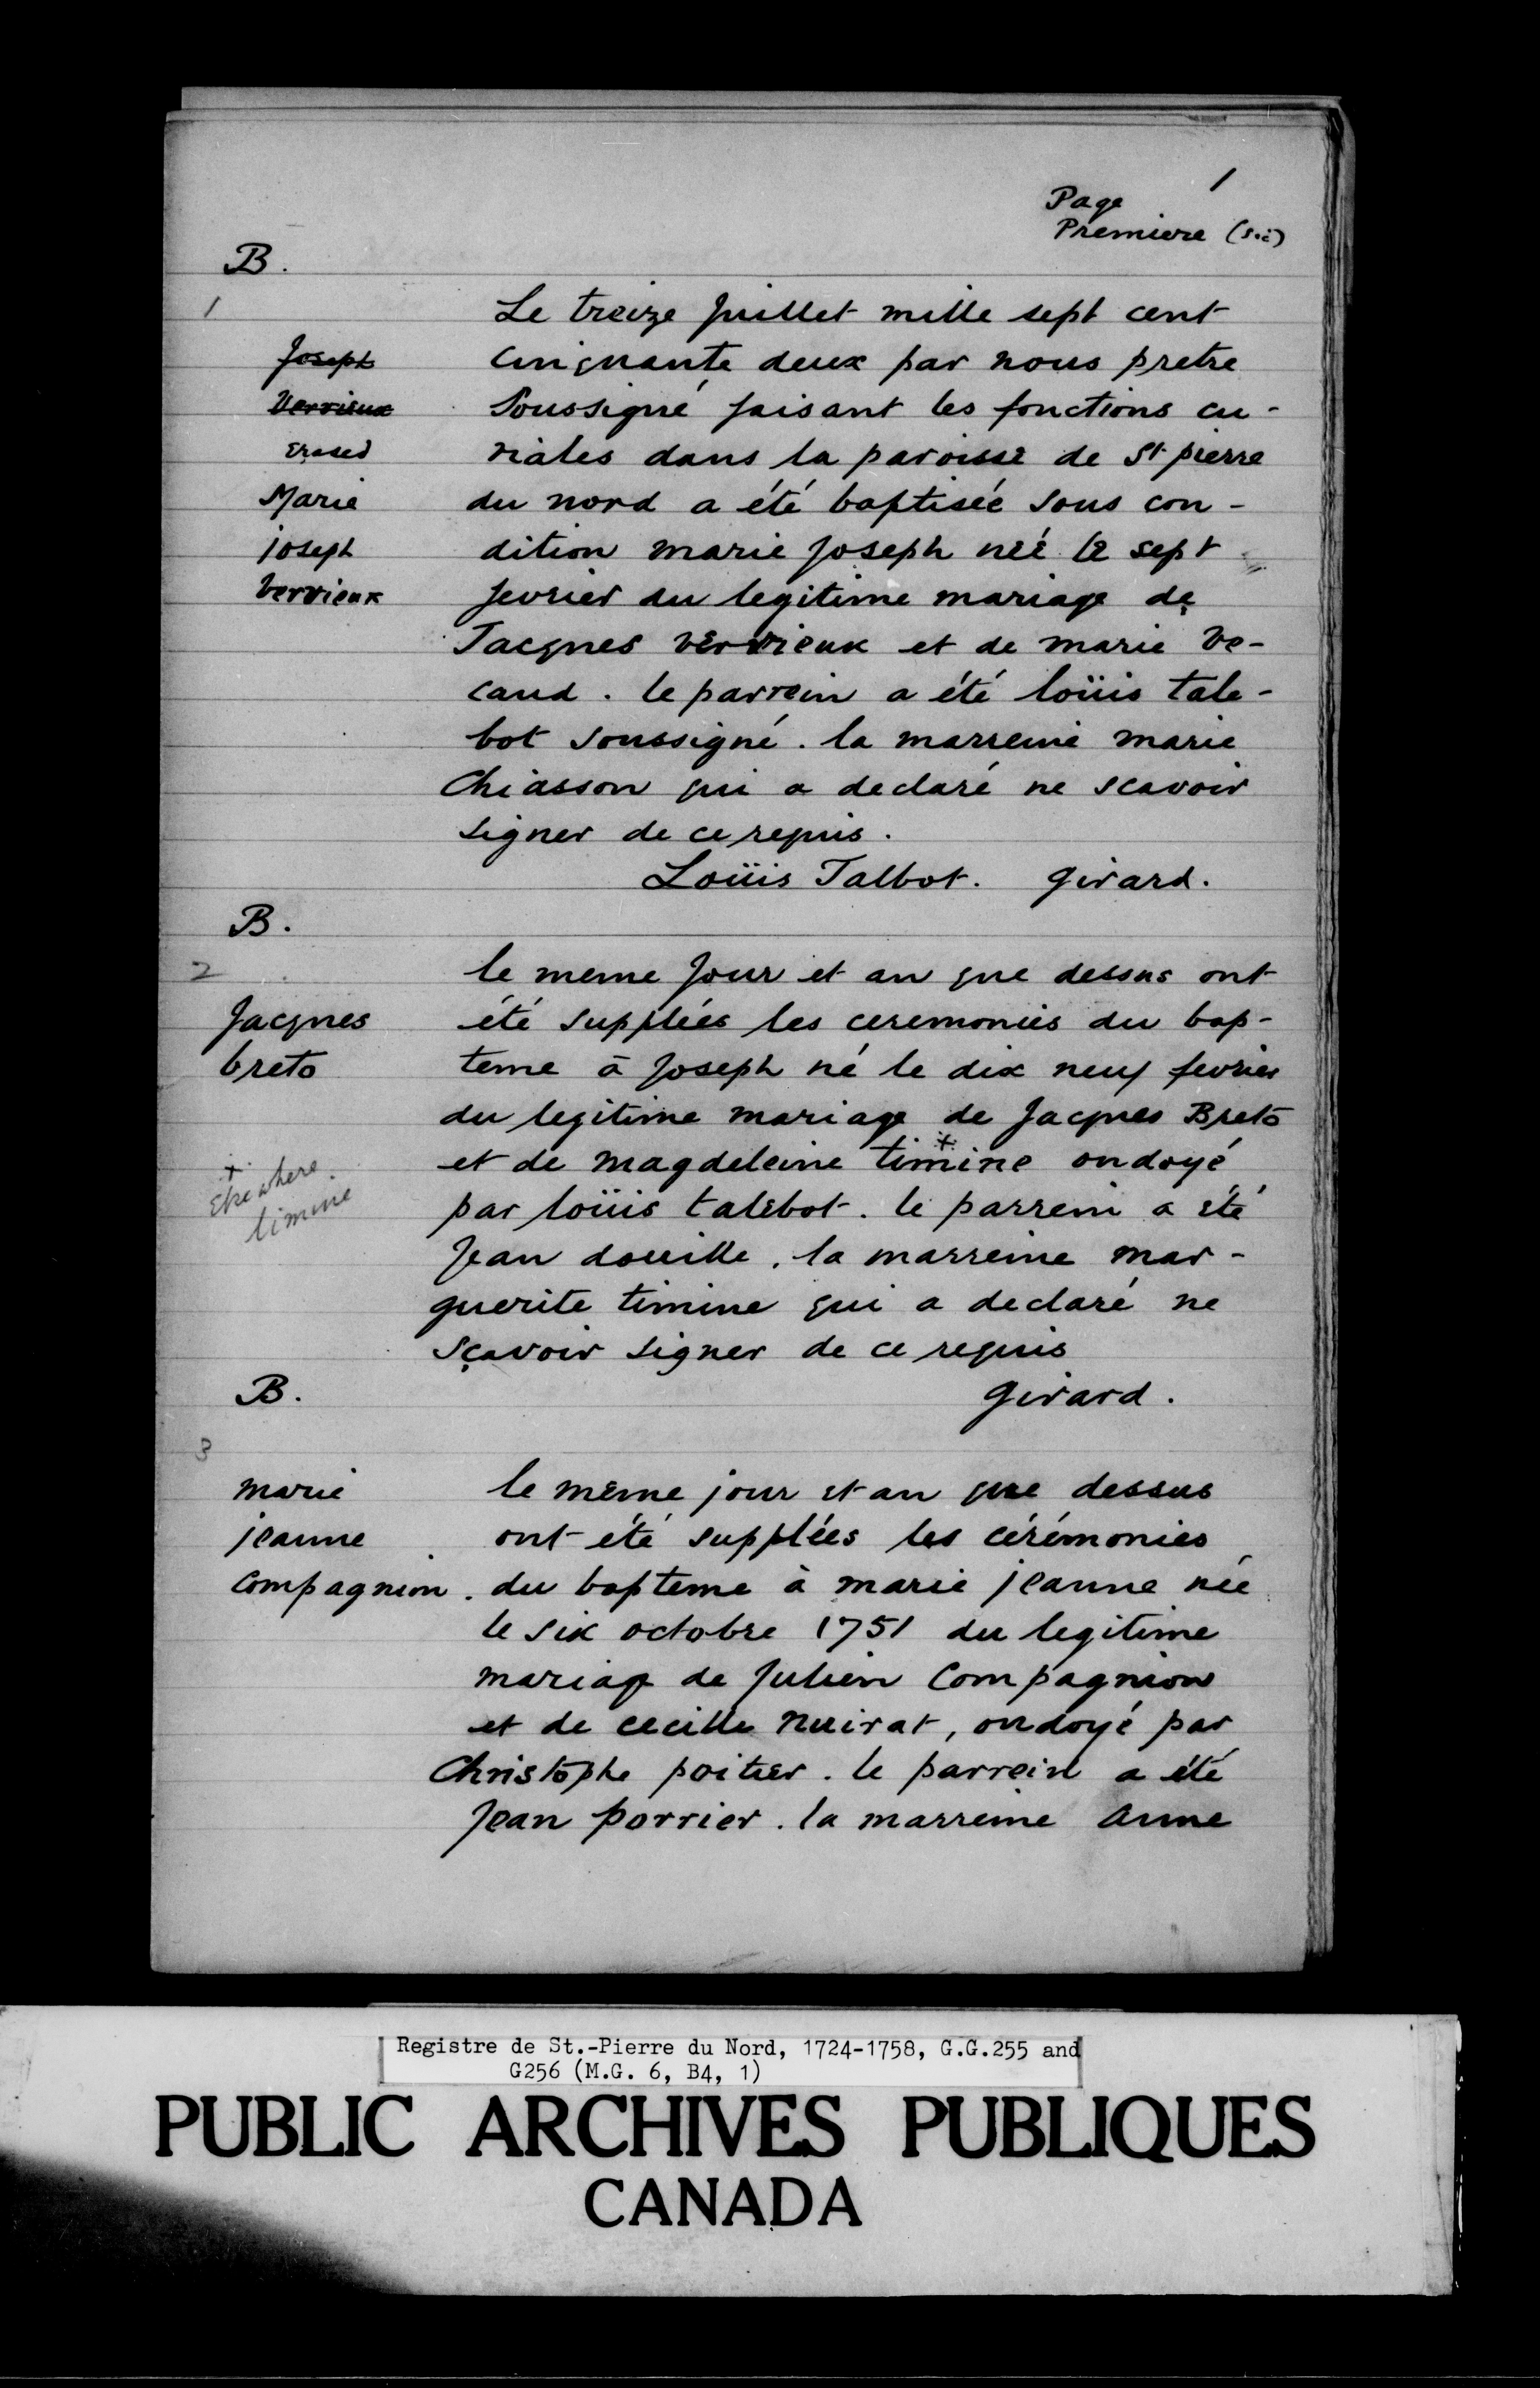 1
Page
Premiere (sic)
B.
1
Le treize juillet mille sept cent
Joseph
cinquante deux par nous pretre
Verrieux
Soussigné faisant les fonctions cu-
Erased
riales dans la paroisse de St pierre
Marie
du nord a été baptisée sous con-
joseph
dition marie joseph néé le sept
Verrieux
fevrier du legitime mariage de
Jacques verrieux et de marie Ve-
caud. le parrein a été loüis tale-
bot soussigné. la marreine marie
Chiasson qui a declaré ne scavoir
signer de ce requis.
Loüis Talbot. girard.
B.
2
le meme jour et an que dessus ont
Jacques
été suppléés les ceremonies du bap-
breto
teme à Joseph né le dix neuf fevrier
du legitime mariage de Jacques Breto
et de magdeleine timine + ondoyé
+
Elsewhere
limine
par loüis talebot. le parrein a été
Jean douille. la marreine mar-
guerite timine qui a declaré ne
sçavoir signer de ce requis
B.
girard.
3
marie
le même jour et an que dessus
jeanne
ont été suppléés les cérémonies
compagnion.
du bapteme à marie jeanne née
le six octobre 1751 du legitime
mariage de Julien Compagnion
et de cecille nuirat, ondoyé par
Christophe poitier. le parrein a été
Jean porrier. la marreine anne
Registre de St.-Pierre du Nord, 1724-1758, G.G.255 and
G256 (M.G. 6, B4, 1)
PUBLIC ARCHIVES PUBLIQUES
CANADA